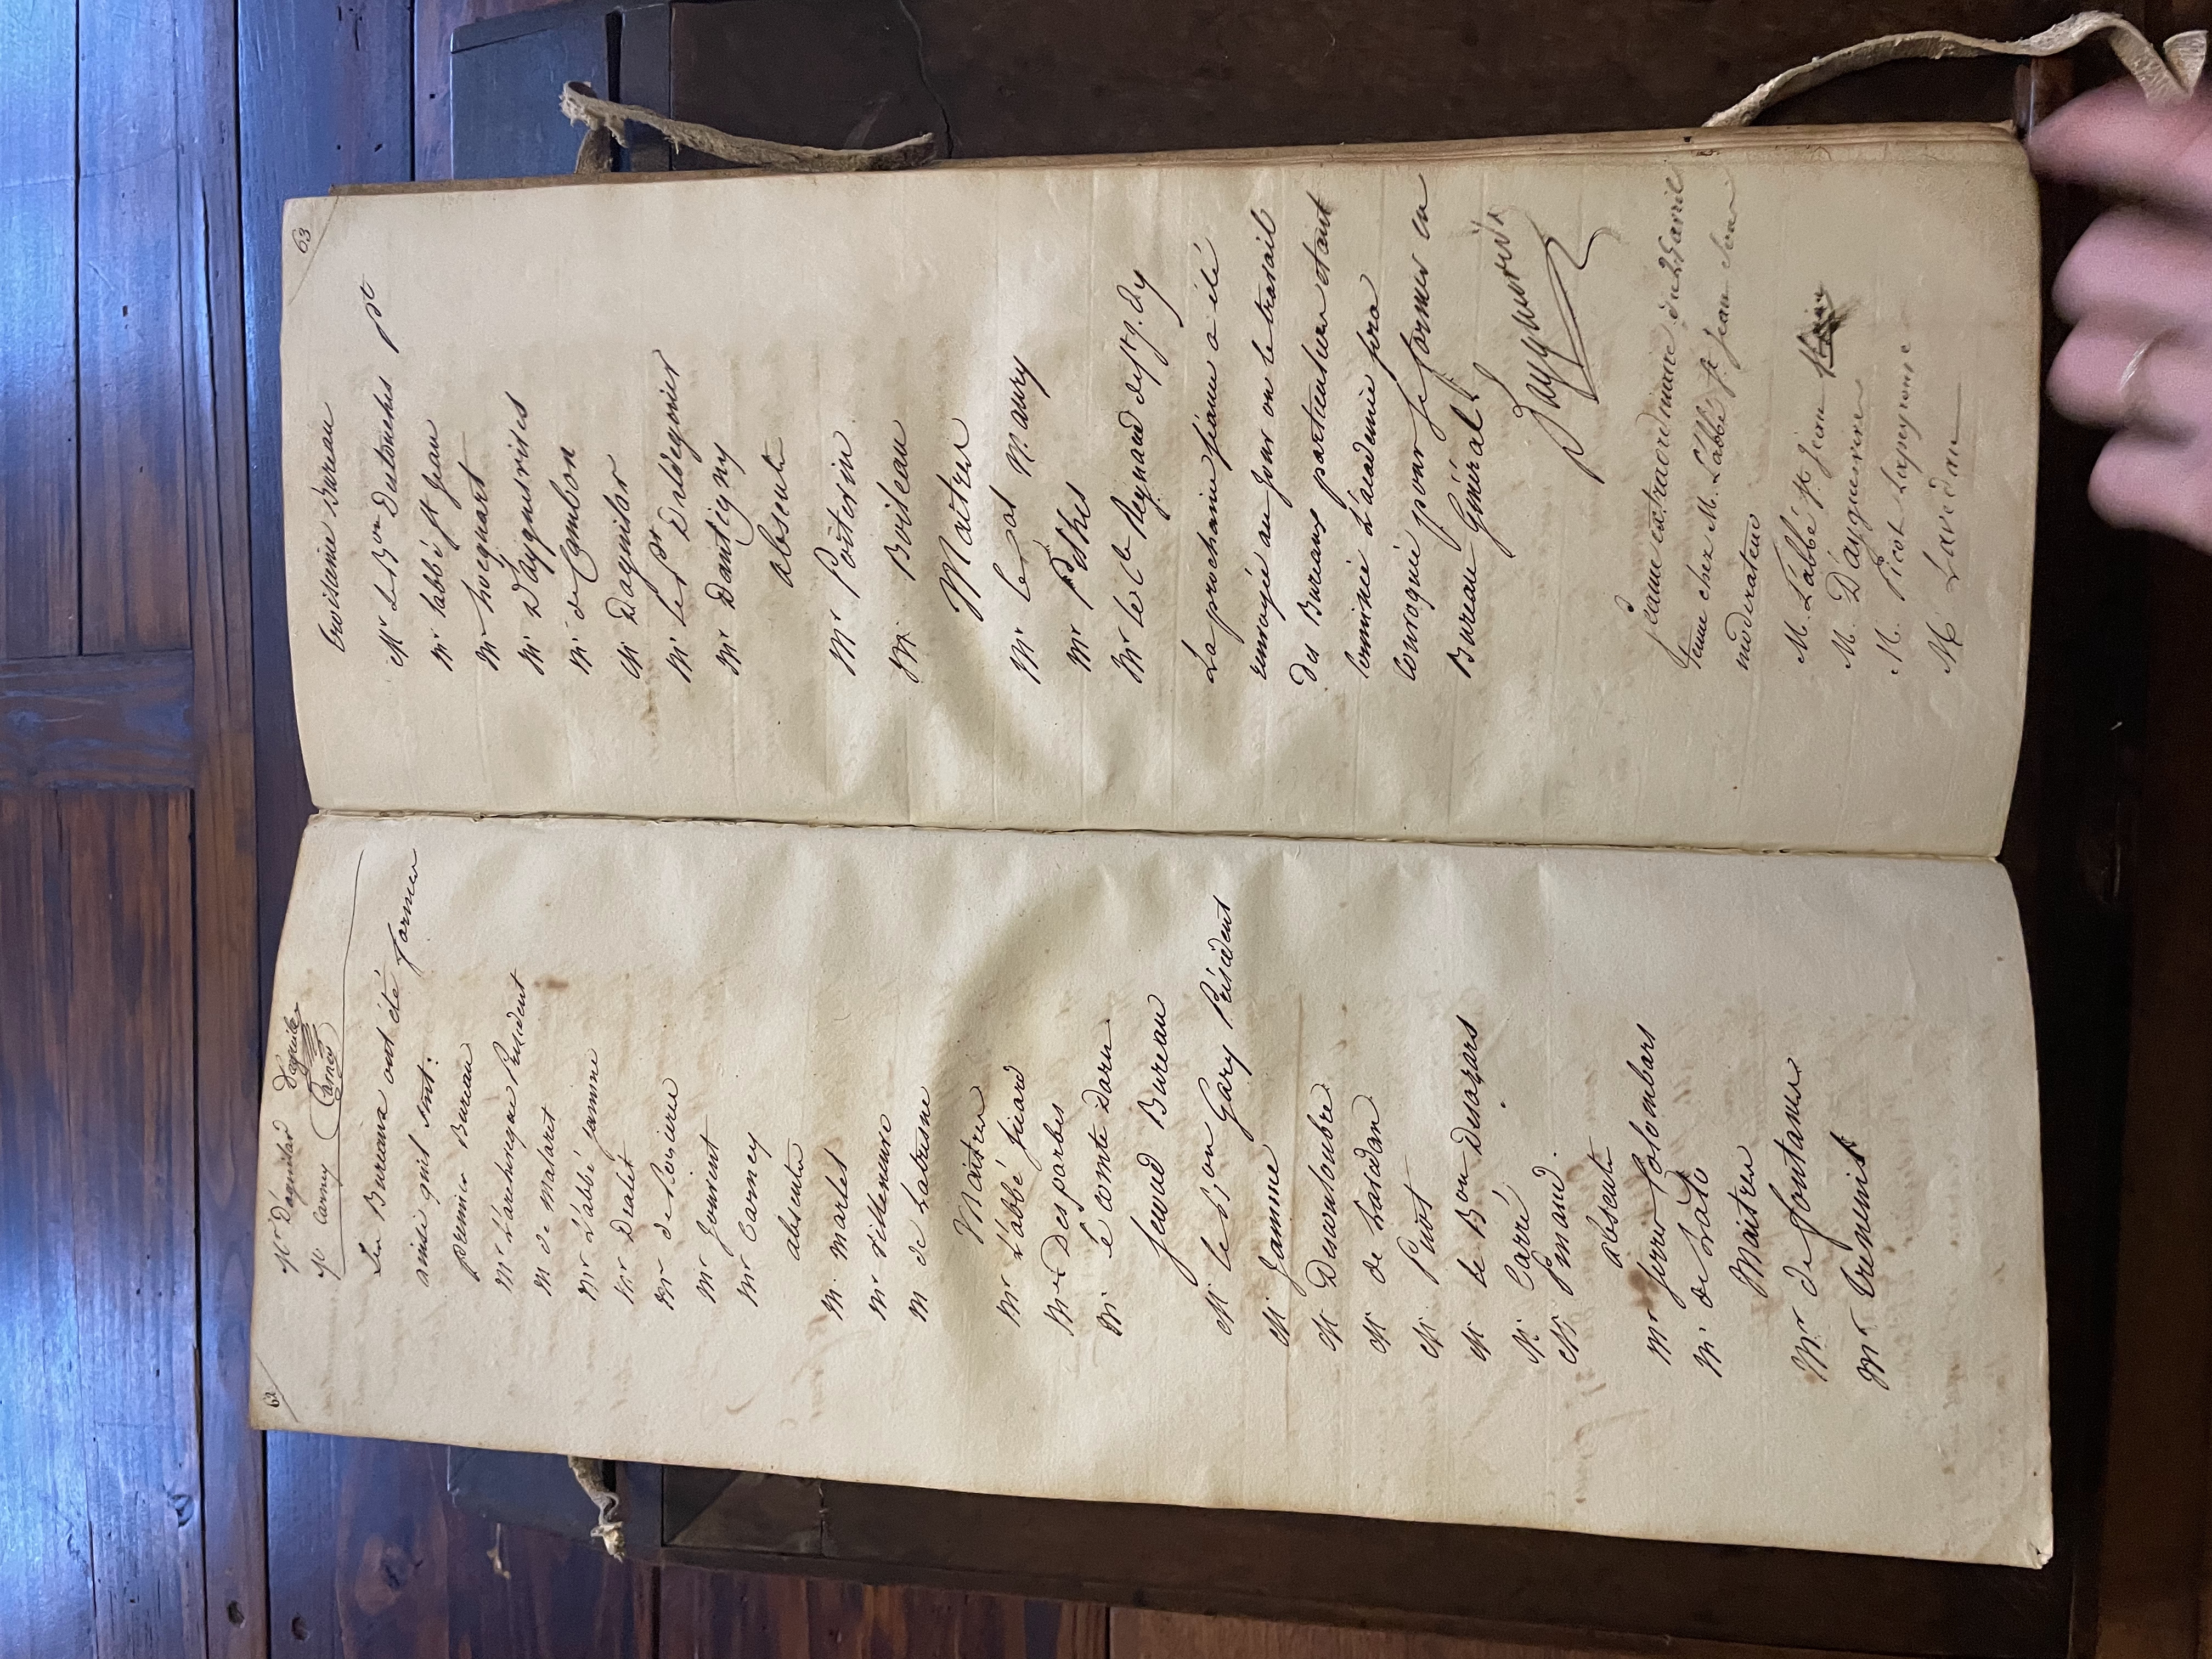 62
Mr D'aguilar Daguilar
Mr Carney Carney
Les Bureaux ont été formés
ainsi qu'il suit:
premier Bureau
Mr L'archeveque President
M de Malaret
Mr L'abbé jamme
Mr Dralet
Mr
Mr Jouvent
Mr Carney
absents
M. Martel
Mr Villeneuve
M de Latresne
Maitres
Mr L'abbé sicard
Mr Desparbes
M. le comte Daru
second Bureau
M. le Bon Gary Président
M Jamme
M Decomboubre
M de Lavedan
M. Pinot
M le Bon Desazars
M. Carré
M. Pinaud.
absents
Mr ferrer Colombars
M. de
Maitres
Mr. de fontanes
Mr treneuil
63
troisieme Bureau
Mr Le Bon Destouches pt
Mr l'abbé st Jean
Mr hocquart
M. D'ayguevives
M. de Cambon
M Daguilar
M. le pt Daldeguier
Mr Dantigny
absents
Mr Poitevin
M. Boileau
Maitres
Mr le cal Maury
Mr Pithes
Mr le Cte Regnaud de st j. d'y
La prochaine séance a été
renvoyée au Jour ou le travail
des Bureaux particuliers etant
terminé L'academie sera
convoquée pour se former en
Bureau Général.
séance extraordinaire du 25 avril
tenue chez M. L'abbé st Jean sous
moderateur
M. L'abbé st Jean
M. D'ayguevives
M. Picot Lapeyrouse
M Lavedan